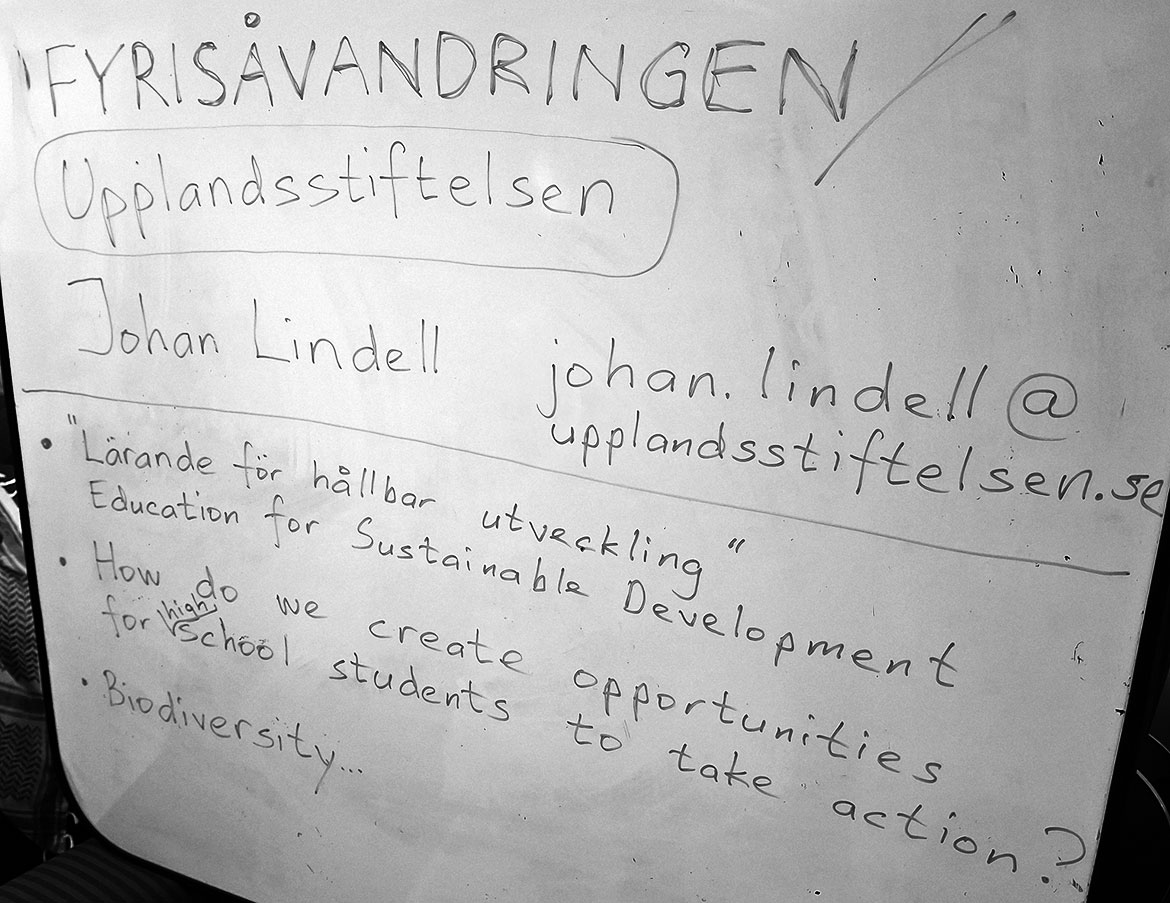 FYRISÅVANDRINGEN
Upplandsstiftelsen
Johan Lindell
johan.lindell@
upplandsstiftelsen.se
• "Lärande för hållbar utveckling"
Education for Sustainable Development
• How do we create opportunities
for high school students to take action?
• Biodiversity...